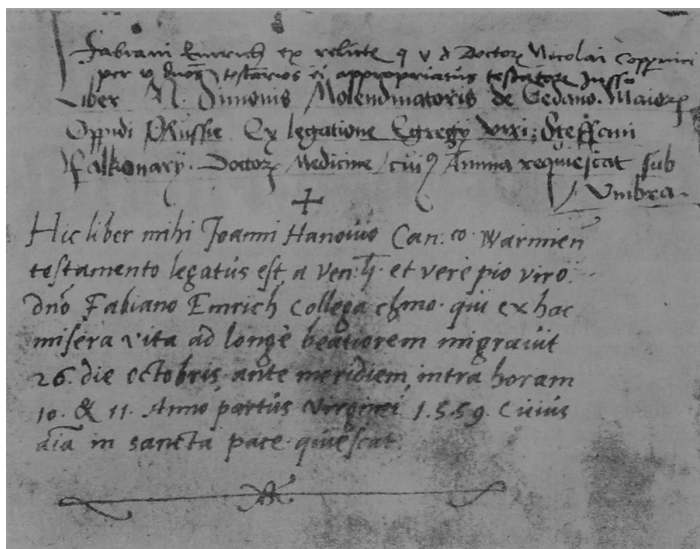 Fabiani Emrich ex relicte q v d Doctor Nicolai Coppnici
per v dnos testarios ei appropriatus testatore Jusso
Liber N. Simonis Molendinatoris de Gedano. Maior
Oppidi Prussie Ex legatione Egregy viri: Steffani
Falkonarij. Doctor Medicine / cui9 Anima requiescat sub
Vmbra.
Hic liber mihi Joanni Hanouio Can:co Warmien
testamento legatus est a Ven:li et vere pio viro
dno Fabiano Emrich Collega chmo qui ex hac
misera vita ad longè beatiorem migrauit
26. die octobris ante meridiem intra horam
10. & 11. Anno partus Virginei 1.5.5.9. Cuius
aia in sancta pace quiescat.